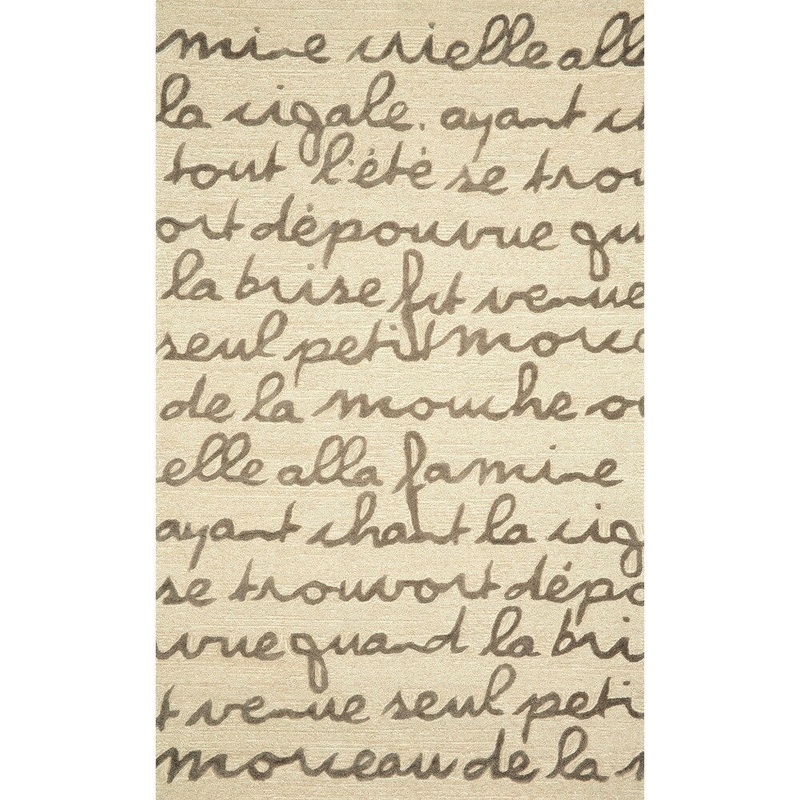 mine vielle all
la cigale. ayant c
tout l'été se trou
ort dépouvue qu
la brise fut venue
seul petit morc
de la mouche o
elle alla famine
ayant chant la cig
se trouvort dépo
vue quand la bri
t venue seul peti
morceau de la